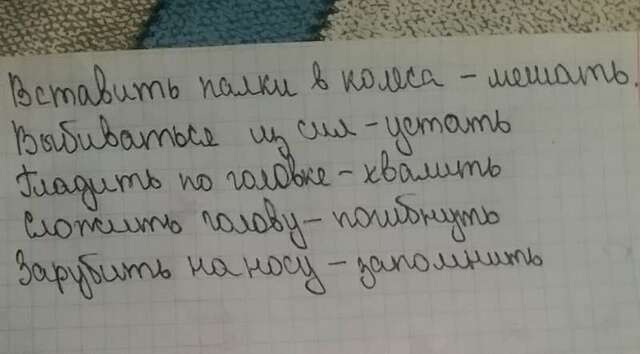 Вставить палки в колеса - мешать.
Выбиваться из сил - устать
Гладить по головке - хвалить
Сложить голову - погибнуть
Зарубить на носу - запомнить